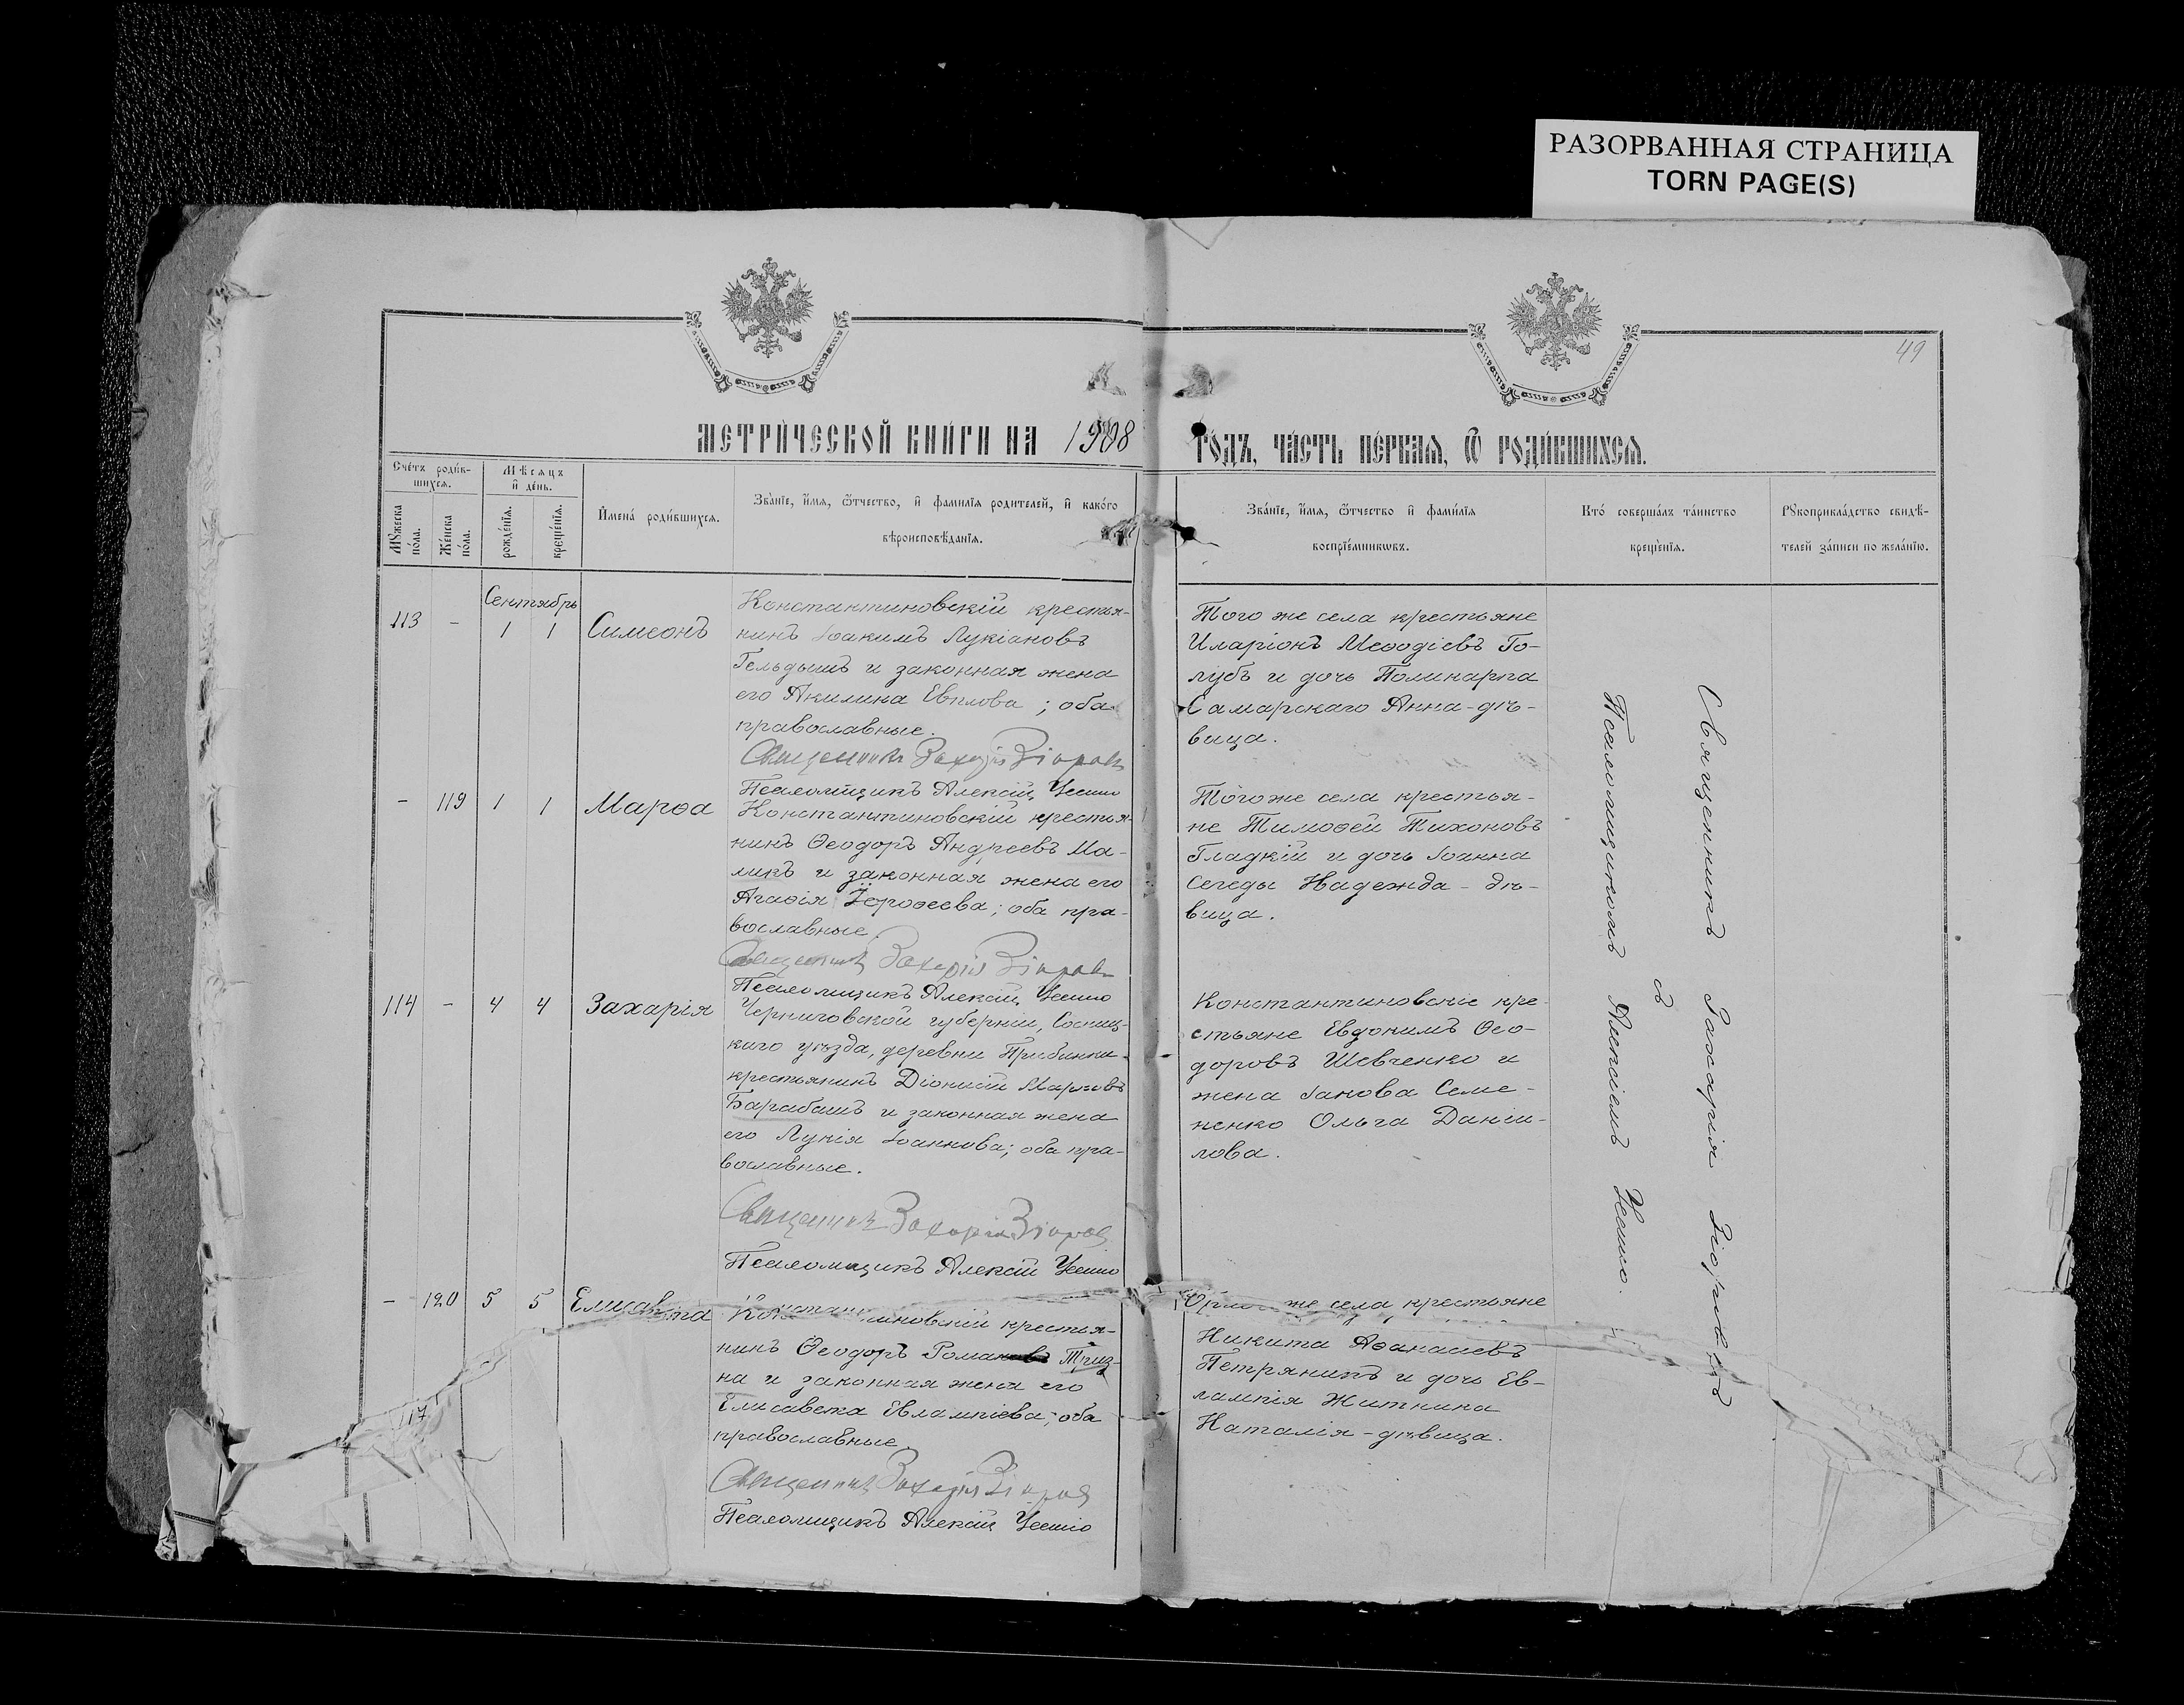 РАЗОРВАННАЯ СТРАНИЦА
TORN PAGE(S)
49
МЕТРИ́ЧЕСКОЙ КНИ́ГИ НА 1908 ГО́ДЪ, ЧА́СТЬ ПЕ́РВАЯ, Ѿ РОДИ́ВШИХСЯ.
Сче́тъ роди́в-
шихся.
Мѣ́сяцъ
и҆ де́нь.
Мꙋ́жеска
по́ла.
Же́нска
по́ла.
рожде́нїя.
креще́нїя.
И҆мена̀ роди́вшихся.
Зва́нїе, и҆́мя, ѻ҆́тчество, и҆ фамилїя родителей, и҆ како́го
вѣроисповѣ́данїя.
Зва́нїе, и҆́мя, ѻ҆́тчество и҆ фами́лїя
воспрїе́мникѡвъ.
Кто̀ соверша́лъ та́инство
креще́нїя.
Рꙋкоприкла́дство свидѣ́-
телей за́писи по жела́нїю.
Сентябрь
113 - 1 1 Симеонъ
Константиновскій крестья-
нинъ Іоакимъ Лукіановъ
Гельдышъ и законная жена
его Акилина Евплова; оба
православные.
Священникъ Захарія
Псаломщикъ Алексій
Того же села крестьяне
Иларіонъ Меѳодіевъ Го-
лубъ и дочь Поликарпа
Самарскаго Анна-дѣ-
вица.
- 119 1 1 Марѳа
Константиновскій крестья-
нинъ Ѳеодоръ Андреевъ Ма-
ликъ и законная жена его
Агаѳія Іероѳеева; оба пра-
вославные.
Священникъ Захарія
Псаломщикъ Алексій
Того же села крестья-
не Тимоѳей Тихоновъ
Гладкій и дочь Іоанна
Сегеды Надежда - дѣ-
вица.
114 - 4 4 Захарія
Черниговской губерніи, Сосниц-
каго уѣзда, деревни
крестьянинъ Діонисій Марковъ
Барабашъ и законная жена
его Лукія Іоаннова; оба пра-
вославные.
Священникъ Захарія
Псаломщикъ Алексій
Константиновскіе кре-
стьяне Евдокимъ Ѳео-
доровъ Шевченко и
жена Іакова Семе-
ненко Ольга Даніи-
лова.
- 120 5 5 Елисавета
Константиновскій крестья-
нинъ Ѳеодоръ Романовъ Триз-
на и законная жена его
Елисавета Евлампіева; оба
православные.
Священникъ Захарія
Псаломщикъ Алексій
же села крестьяне
Никита Аѳанасіевъ
Петряникъ и дочь Ев-
лампія Житника
Наталія-дѣвица.
117
Священникъ Захарія
съ
Псаломщикомъ Алексіемъ